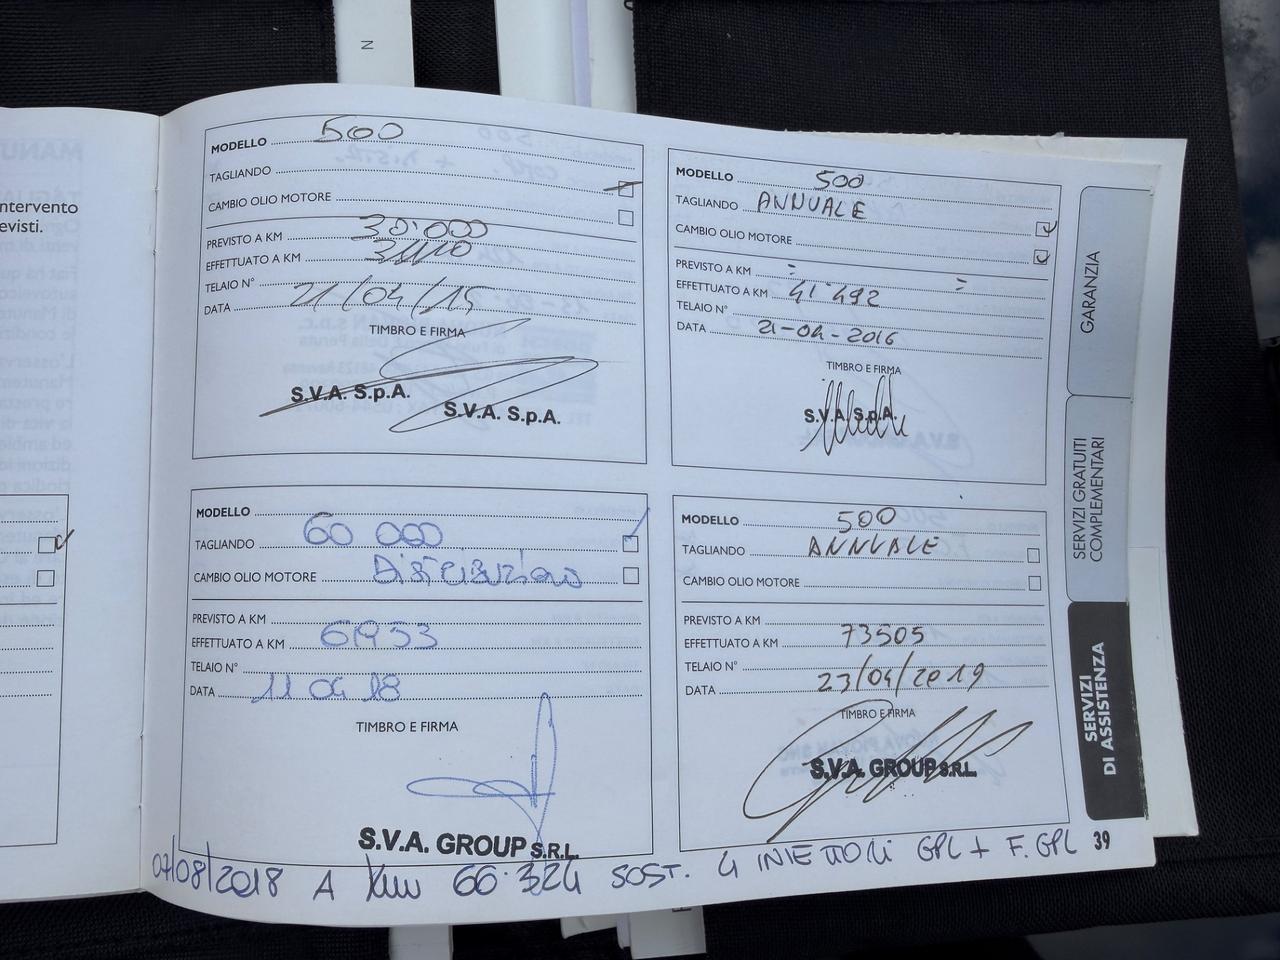 N
ntervento
evisti.
MODELLO 500
TAGLIANDO
CAMBIO OLIO MOTORE
PREVISTO A KM 30.000
EFFETTUATO A KM
TELAIO N°
DATA 21/04/15
TIMBRO E FIRMA
S.V.A. S.p.A.
S.V.A. S.p.A.
MODELLO 500
TAGLIANDO ANNUALE
CAMBIO OLIO MOTORE
PREVISTO A KM
EFFETTUATO A KM 41.492
TELAIO N°
DATA 21-04-2016
TIMBRO E FIRMA
S.V.A. S.p.A.
MODELLO
TAGLIANDO 60 000
CAMBIO OLIO MOTORE Distribuzione
PREVISTO A KM
EFFETTUATO A KM 61953
TELAIO N°
DATA 11 04 18
TIMBRO E FIRMA
S.V.A. GROUP S.R.L.
MODELLO 500
TAGLIANDO ANNUALE
CAMBIO OLIO MOTORE
PREVISTO A KM
EFFETTUATO A KM 73505
TELAIO N°
DATA 23/04/2019
TIMBRO E FIRMA
S.V.A. GROUP S.R.L.
07/08/2018 A Km 66.324 SOST. 4 INIETTORI GPL + F. GPL
39
GARANZIA
SERVIZI GRATUITI
COMPLEMENTARI
SERVIZI
DI ASSISTENZA